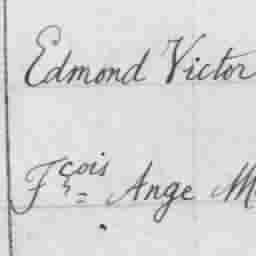 Edmond Victor
Fçois = Ange M